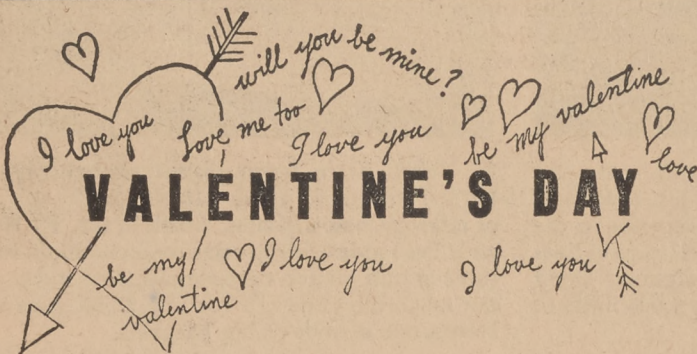 will you be mine?
I love you
Love me too
I love you
be my valentine
love
VALENTINE'S DAY
be my
valentine
I love you
I love you